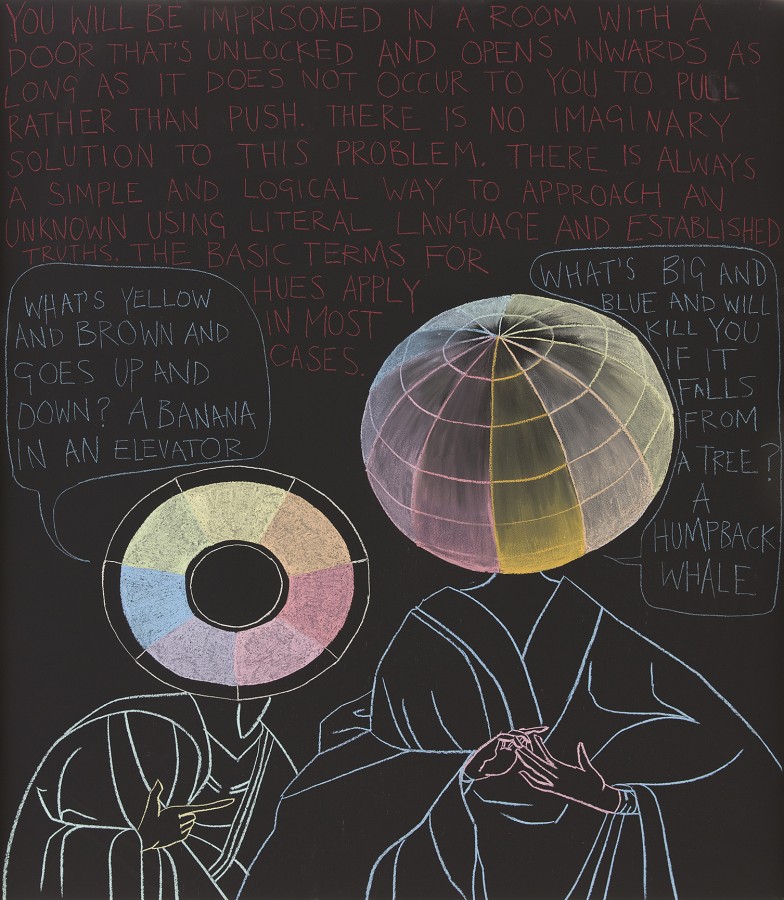 YOU WILL BE IMPRISONED IN A ROOM WITH A
DOOR THAT'S UNLOCKED AND OPENS INWARDS AS
LONG AS IT DOES NOT OCCUR TO YOU TO PULL
RATHER THAN PUSH. THERE IS NO IMAGINARY
SOLUTION TO THIS PROBLEM. THERE IS ALWAYS
A SIMPLE AND LOGICAL WAY TO APPROACH AN
UNKNOWN USING LITERAL LANGUAGE AND ESTABLISHED
TRUTHS. THE BASIC TERMS FOR
HUES APPLY
IN MOST
CASES.
WHAT'S YELLOW
AND BROWN AND
GOES UP AND
DOWN? A BANANA
IN AN ELEVATOR
WHAT'S BIG AND
BLUE AND WILL
KILL YOU
IF IT
FALLS
FROM
A TREE?
A
HUMPBACK
WHALE